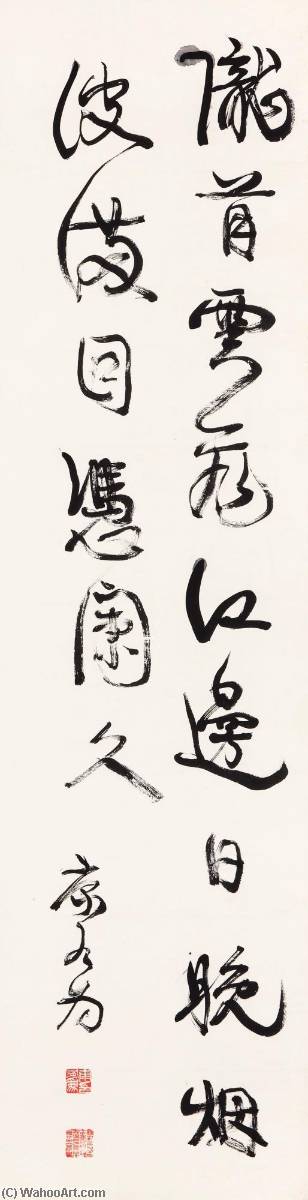 隴首雲飛江邊日晚烟
波滿目憑闌久
康有為
(C) WahooArt.com